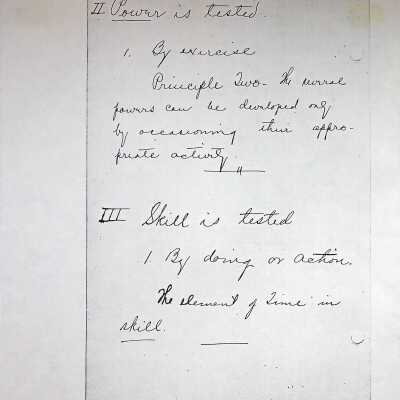 II Power is tested.
1. By exercise
Principle Two - The
powers can be developed only
by occasioning their appro-
priate activity
"
III Skill is tested
1. By doing or action.
The element of Time in
skill.